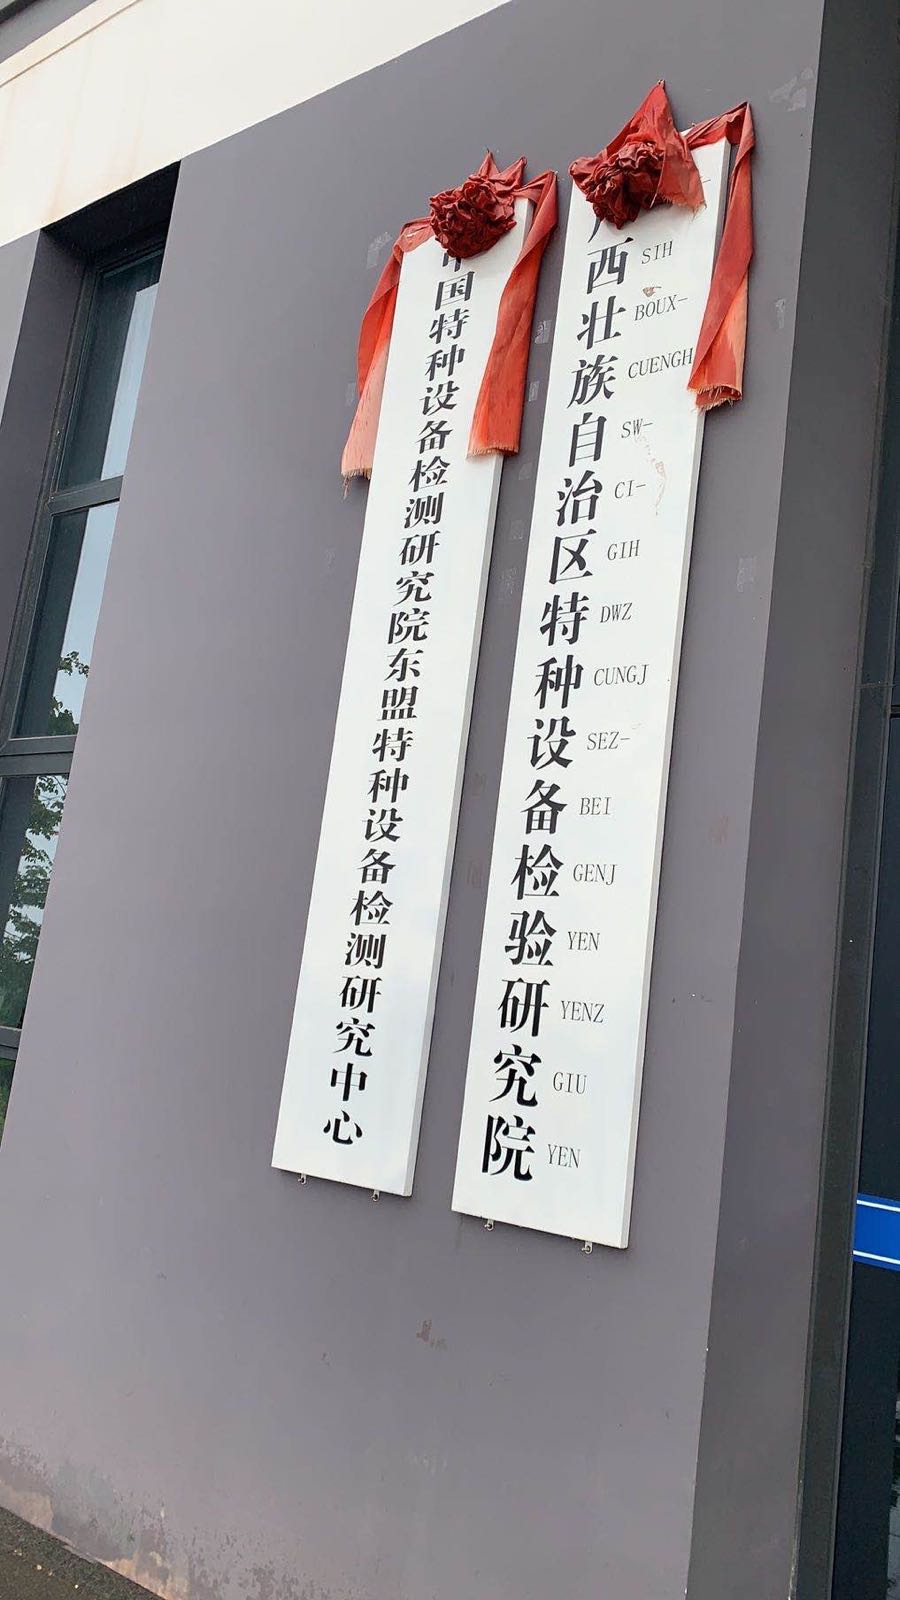 中国特种设备检测研究院东盟特种设备检测研究中心
广西壮族自治区特种设备检验研究院
SIH BOUX- CUENGH SW- CI- GIH DWZ CUNGJ SEZ- BEI GENJ YEN YENZ GIU YEN